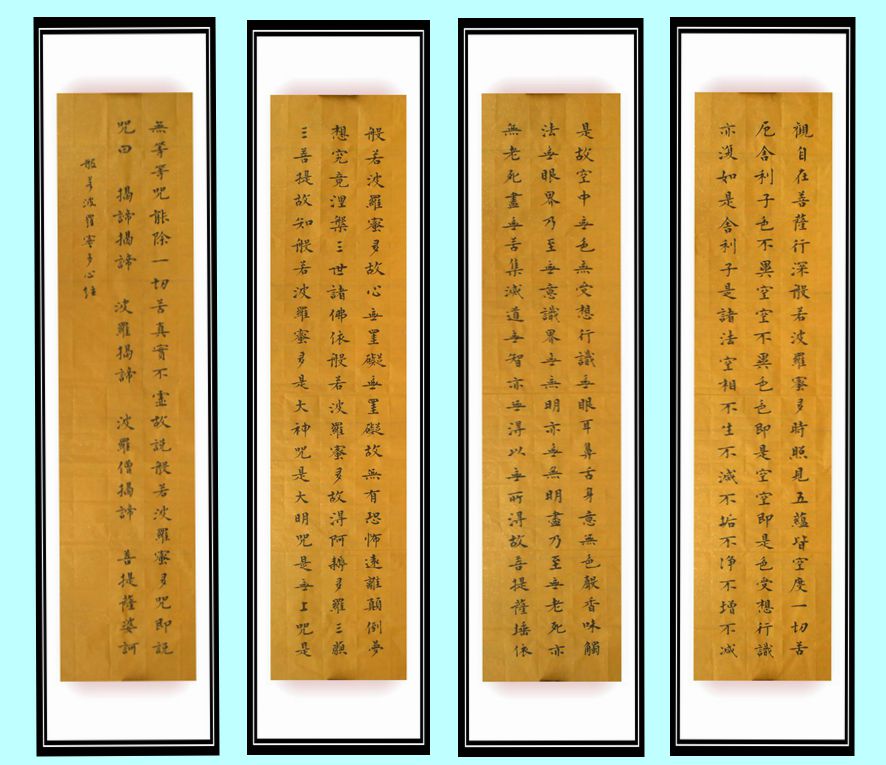 觀自在菩薩行深般若波羅蜜多時照見五蘊皆空度一切苦
厄舍利子色不異空空不異色色即是空空即是色受想行識
亦復如是舍利子是諸法空相不生不滅不垢不净不增不減
是故空中無色無受想行識無眼耳鼻舌身意無色聲香味觸
法無眼界乃至無意識界無無明亦無無明盡乃至無老死亦
無老死盡無苦集滅道無智亦無得以無所得故菩提薩埵依
般若波羅蜜多故心無罣礙無罣礙故無有恐怖遠離顛倒夢
想究竟涅槃三世諸佛依般若波羅蜜多故得阿耨多羅三藐
三菩提故知般若波羅蜜多是大神咒是大明咒是無上咒是
無等等咒能除一切苦真實不虛故說般若波羅蜜多咒即說
咒曰 揭諦揭諦 波羅揭諦 波羅僧揭諦 菩提薩婆訶
般若波羅蜜多心經